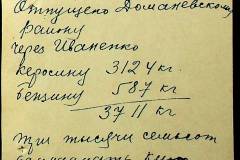 Отпущено Доманевскому
району
через Иваненко
керосину 3124 кг.
бензину 587 кг
3711 кг
три тысячи семьсот